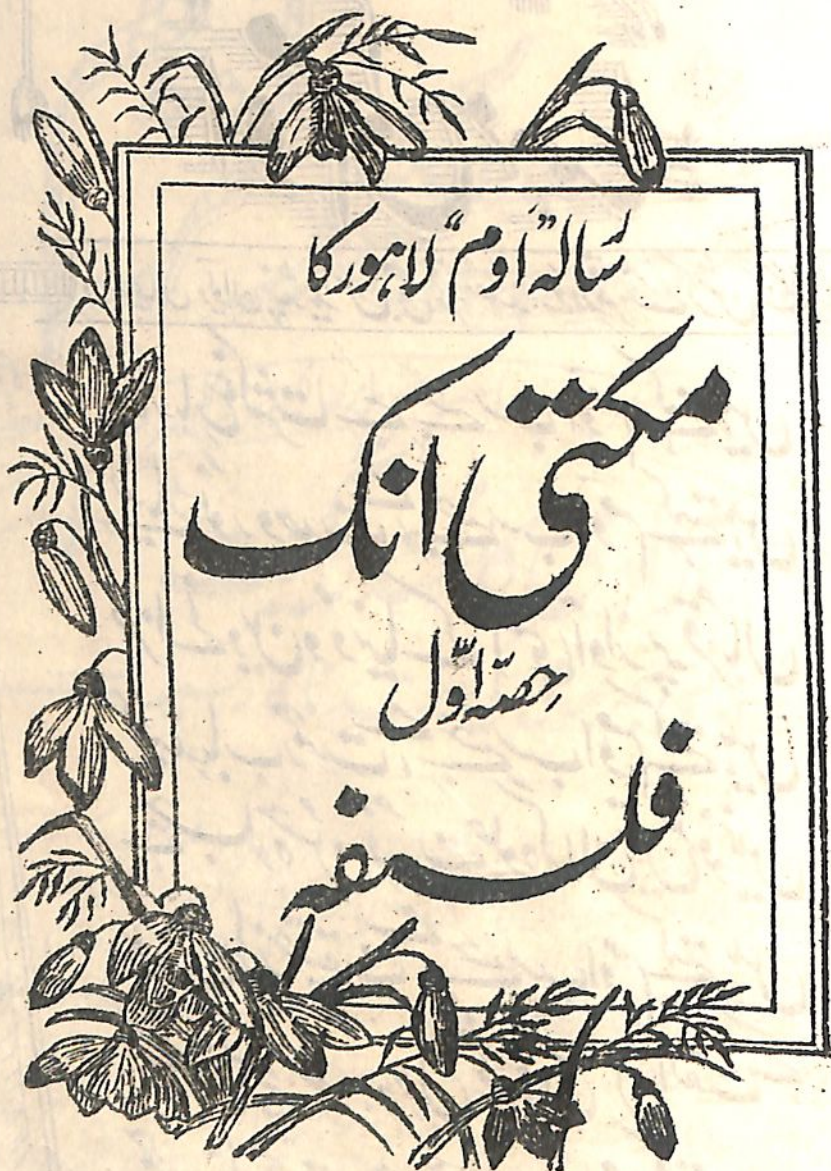 رسالہ "اوم" لاہور کا
مکتی انک
حصّہ اوّل
فلسفہ